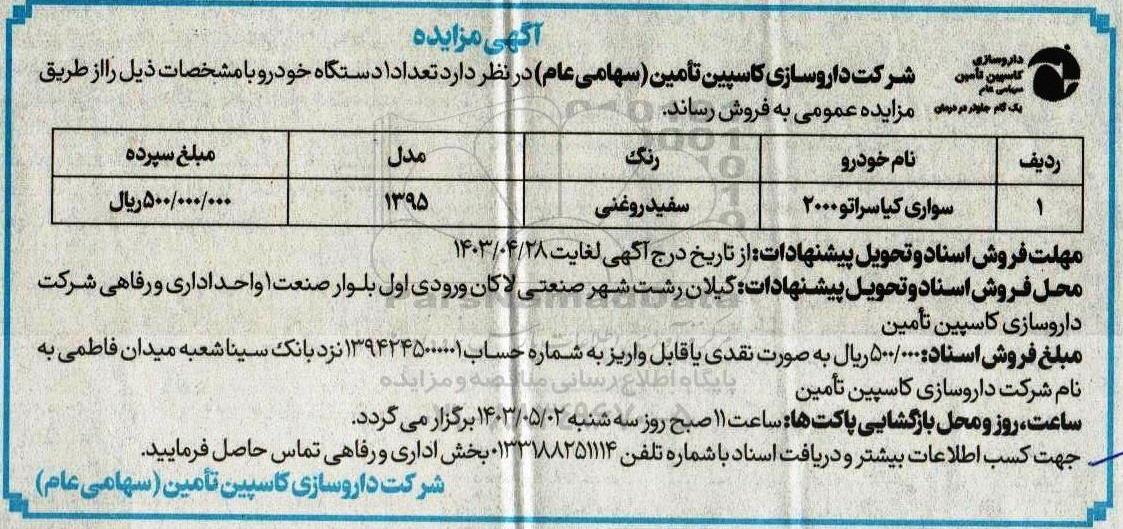 آگهی مزایده
داروسازی
کاسپین تأمین
سهامی عام
یک گام جلوتر در درمان
شرکت داروسازی کاسپین تأمین (سهامی عام) در نظر دارد تعداد ۱ دستگاه خودرو با مشخصات ذیل را از طریق
مزایده عمومی به فروش رساند.
ردیف نام خودرو رنگ مدل مبلغ سپرده
۱ سواری کیا سراتو ۲۰۰۰ سفید روغنی ۱۳۹۵ ۵۰۰/۰۰۰/۰۰۰ ریال
مهلت فروش اسناد و تحویل پیشنهادات: از تاریخ درج آگهی لغایت ۱۴۰۳/۰۴/۲۸
محل فروش اسناد و تحویل پیشنهادات: گیلان رشت شهر صنعتی لاکان ورودی اول بلوار صنعت ۱ واحد اداری و رفاهی شرکت
داروسازی کاسپین تأمین
مبلغ فروش اسناد: ۵۰۰/۰۰۰ ریال به صورت نقدی یا قابل واریز به شماره حساب ۱۳۹۴۲۴۵۰۰۰۰۰۱ نزد بانک سینا شعبه میدان فاطمی به
نام شرکت داروسازی کاسپین تأمین
ساعت، روز و محل بازگشایی پاکت ها: ساعت ۱۱ صبح روز سه شنبه ۱۴۰۳/۰۵/۰۲ برگزار می گردد.
جهت کسب اطلاعات بیشتر و دریافت اسناد با شماره تلفن ۰۱۳۳۱۸۸۲۵۱۱۱۴ بخش اداری و رفاهی تماس حاصل فرمایید.
شرکت داروسازی کاسپین تأمین (سهامی عام)
پایگاه اطلاع رسانی مناقصه و مزایده